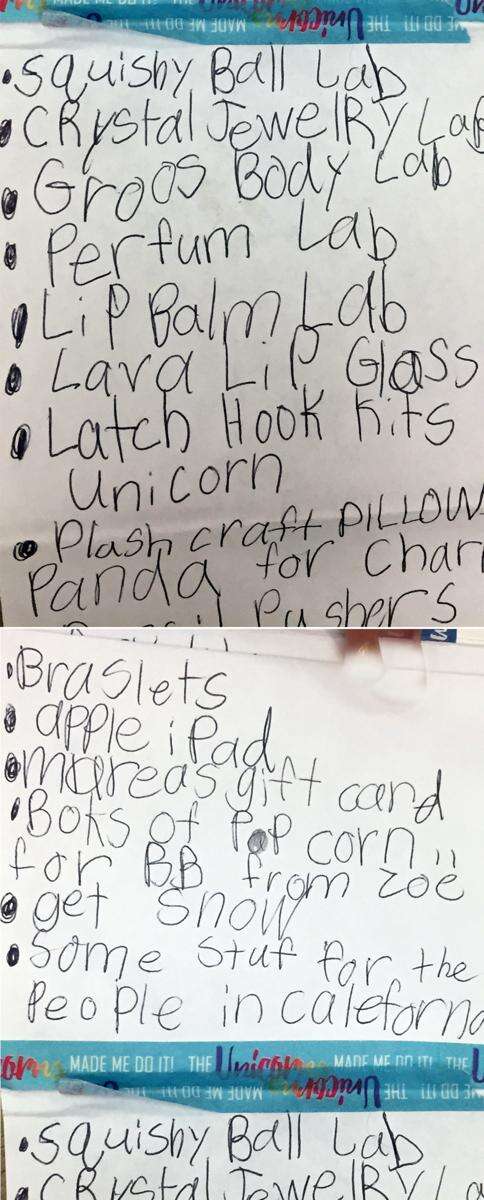 MADE ME DO IT! THE Unicorn MADE ME DO IT! THE
• Squishy Ball Lab
• CRystal JewelRy Lab
• Groos Body Lab
• Perfum Lab
• LiP Balm Lab
• Lava LiP Glass
• Latch Hook Kits
Unicorn
• Plash craft PILLOW
Panda for Char
Pushers
• Braslets
• apple iPad
gift card
• Boks of PoP corn
for BB from zoe
• get snow
• Some stuf for the
PeoPle in caleforna
MADE ME DO IT! THE Unicorn MADE ME DO IT! THE
MADE ME DO IT! THE Unicorn MADE ME DO IT! THE
• Squishy Ball Lab
• CRystal JewelRy La